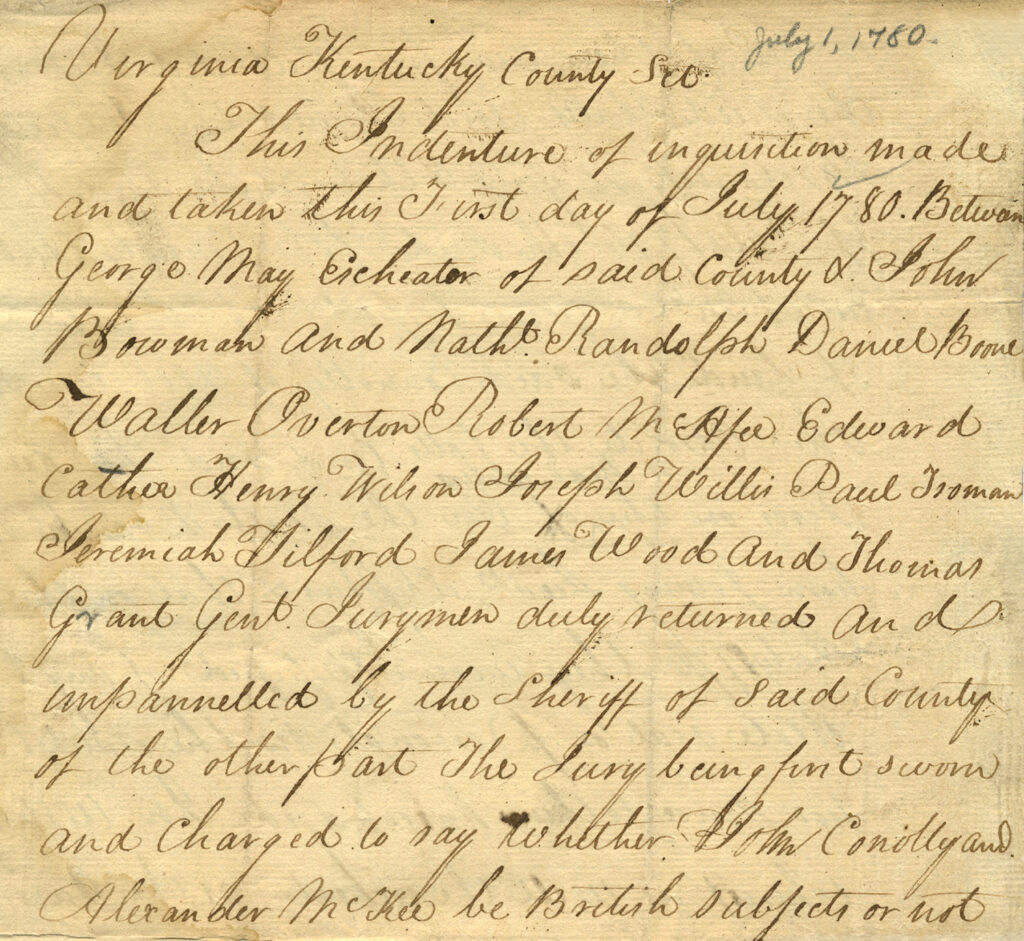 July 1, 1780.
Virginia Kentucky County Sct.
This Indenture of inquisition made
and taken this First day of July 1780. Between
George May Escheator of said County & John
Bowman and Nathl. Randolph Daniel Boone
Waller Overton Robert McAfee Edward
Cather Henry Wilson Joseph Willis Paul Froman
Jeremiah Tilford James Wood and Thomas
Grant Gent. Jurymen duly returned and
impannelled by the Sheriff of said County
of the other part The Jury being first sworn
and Charged to say Whether John Conolly and
Alexander McKee be British subjects or not